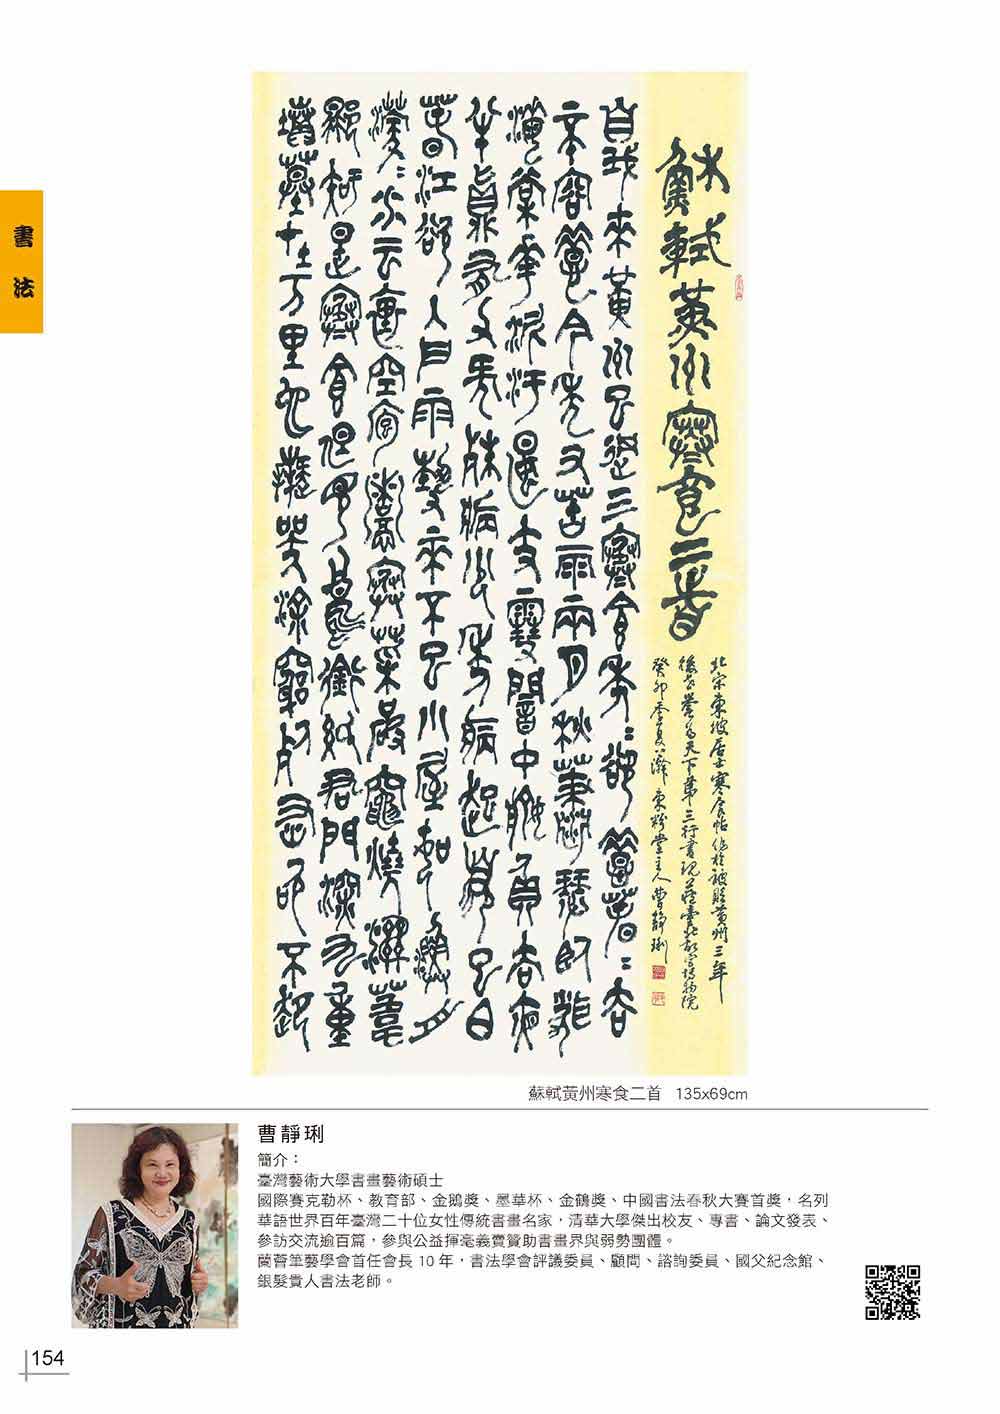 書法
蘇軾黃州寒食二首
北宋東坡居士寒食帖作於被貶黃州三年
後世譽為天下第三行書現藏臺北故宮博物院
癸卯季夏 堂主人曹靜琍
自我來黃州已過三寒食年〻欲惜春〻去
不容惜今年又苦雨兩月秋蕭瑟臥聞
海棠花泥汙燕支雪闇中偷負去夜
半真有力何殊病少年病起鬚已白
春江欲入戶雨勢來不已小屋如漁舟
濛〻水雲裏空庖煮寒菜破竈燒溼葦
那知是寒食但見烏銜紙君門深九重
墳墓在万里也擬哭塗窮死灰吹不起
蘇軾黃州寒食二首 135x69cm
曹靜琍
簡介：
臺灣藝術大學書畫藝術碩士
國際賽克勒杯、教育部、金鵝獎、墨華杯、金鶴獎、中國書法春秋大賽首獎，名列
華語世界百年臺灣二十位女性傳統書畫名家，清華大學傑出校友、專書、論文發表、
參訪交流逾百篇，參與公益揮毫義賣贊助書畫界與弱勢團體。
蘭薈筆藝學會首任會長 10 年，書法學會評議委員、顧問、諮詢委員、國父紀念館、
銀髮貴人書法老師。
154